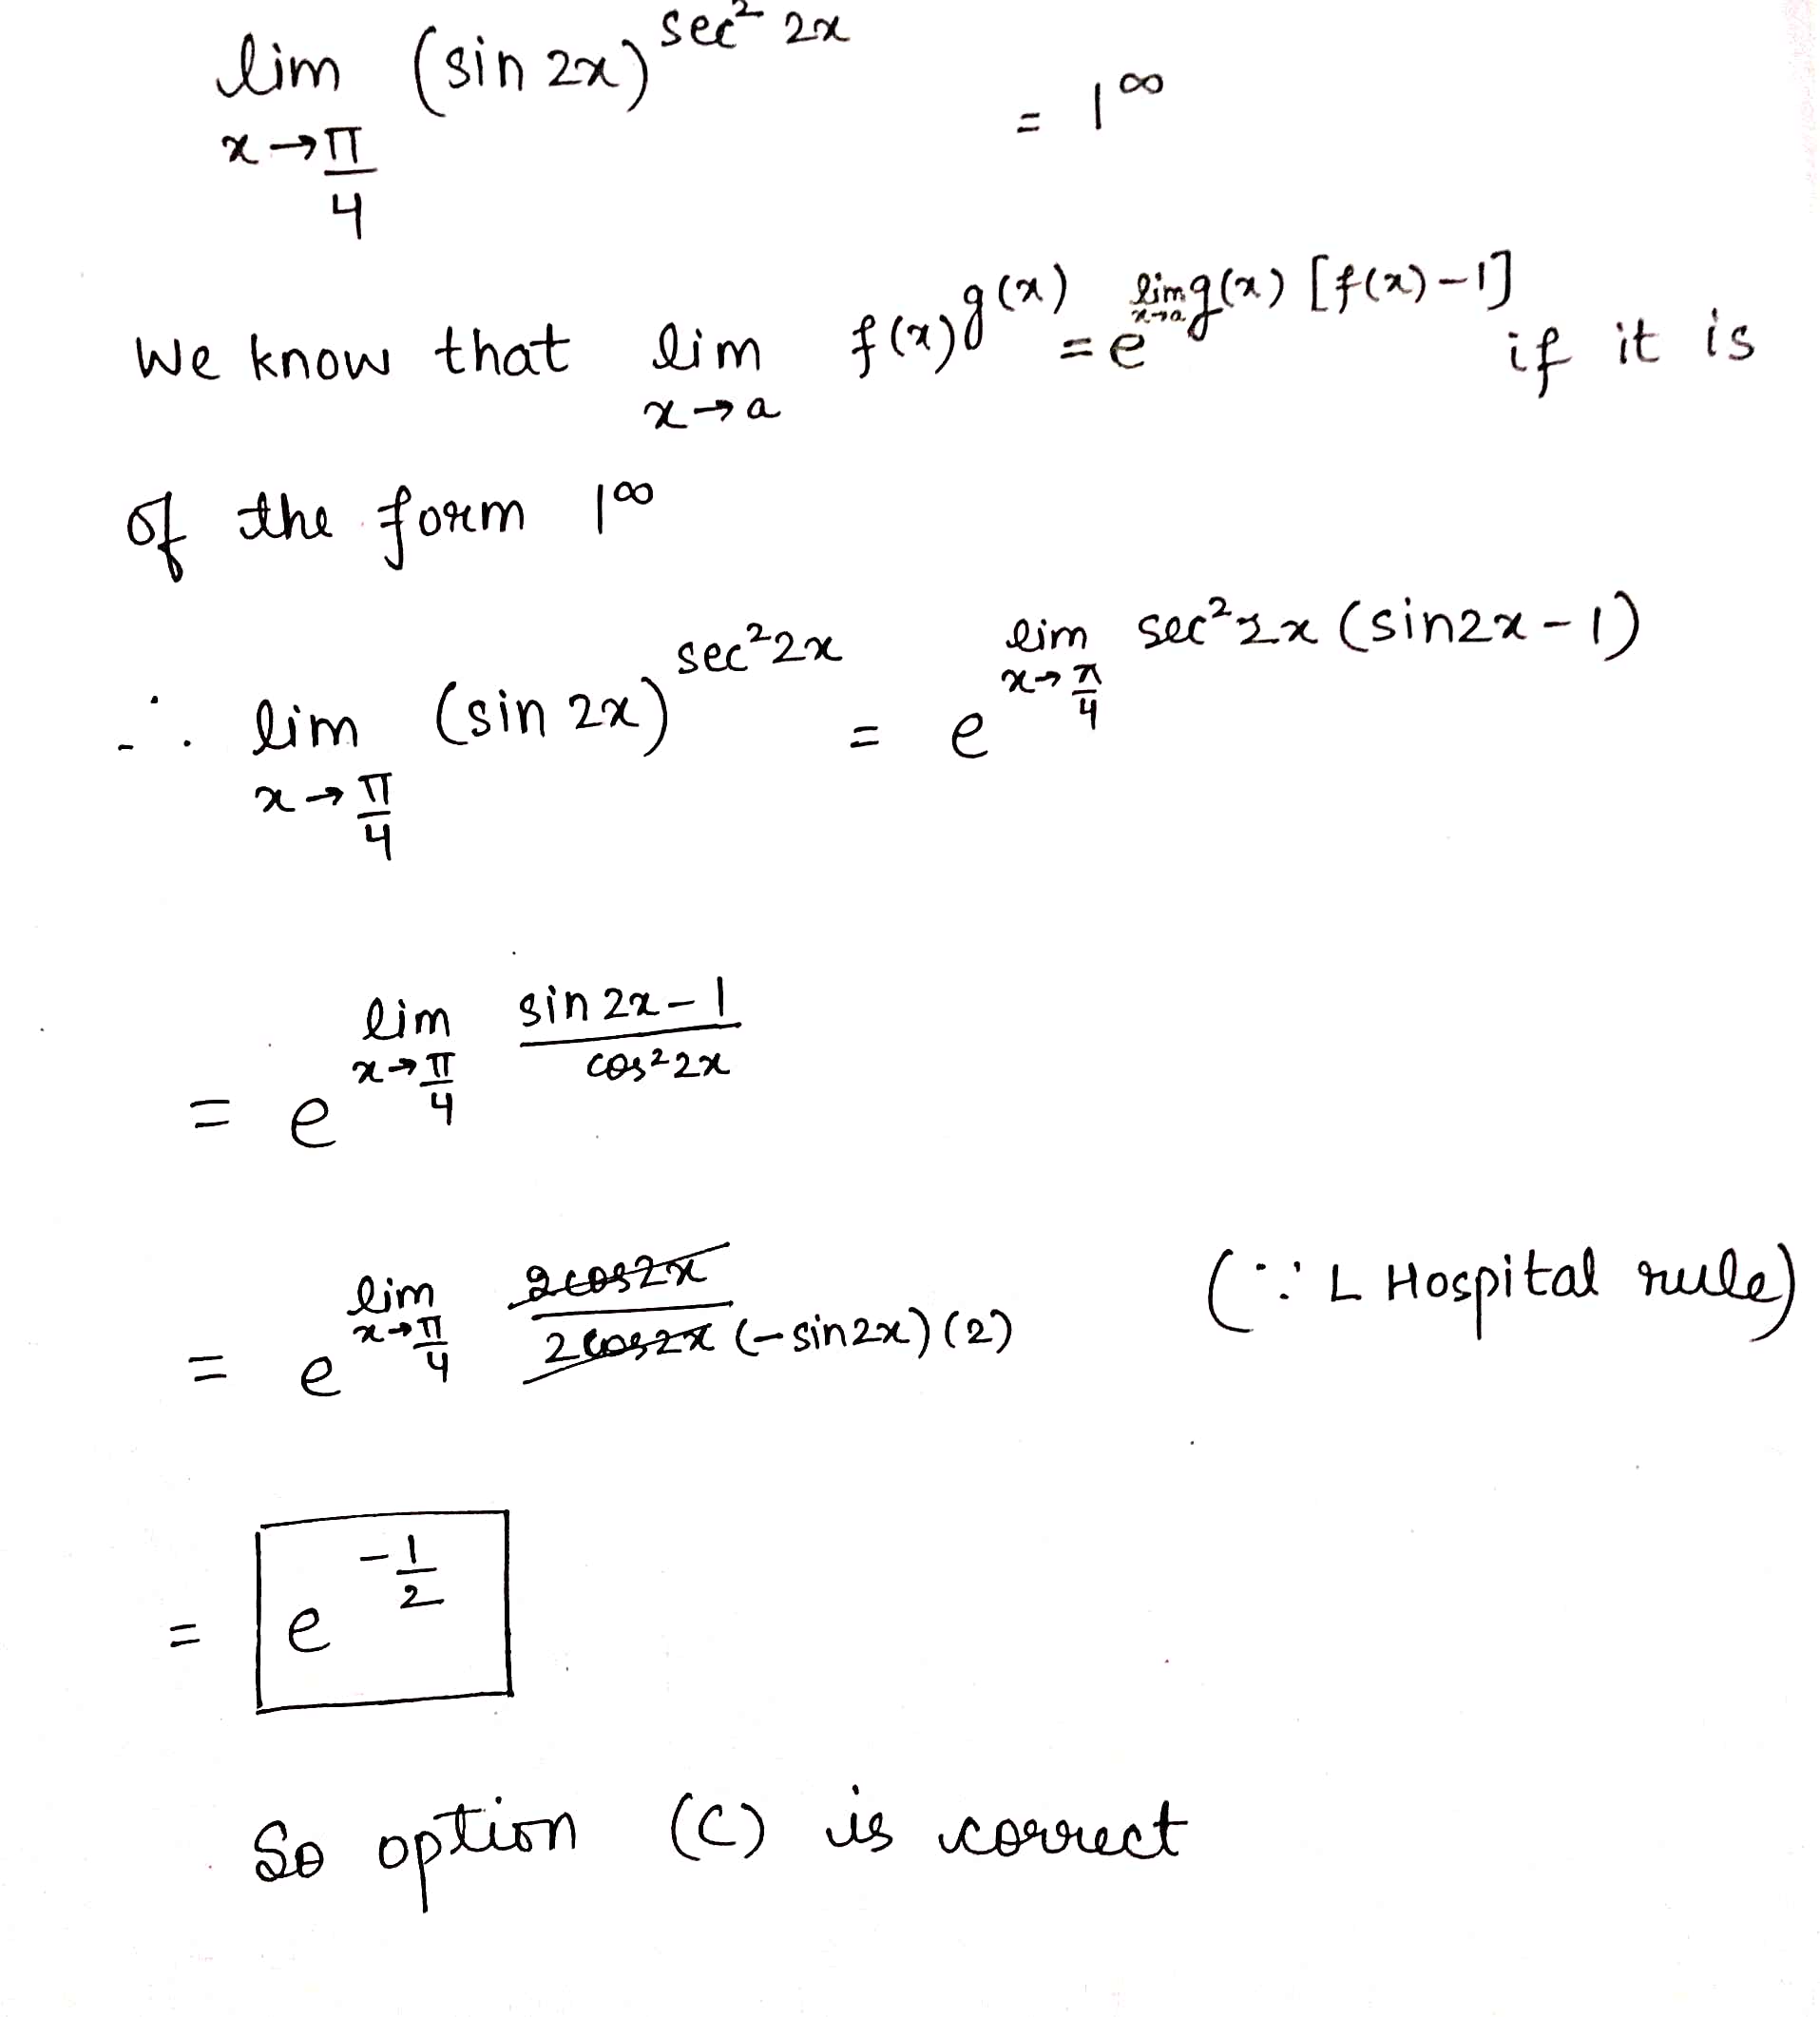 lim x→π/4 (sin 2x)^(sec² 2x) = 1^∞
We know that lim x→a f(x)^g(x) = e^(lim x→a g(x) [f(x)-1]) if it is
of the form 1^∞
∴ lim x→π/4 (sin 2x)^(sec² 2x) = e^(lim x→π/4 sec² 2x (sin2x-1))
= e^(lim x→π/4 (sin 2x-1)/(cos² 2x))
= e^(lim x→π/4 (2cos2x)/(2cos2x (-sin2x)(2))) (∵ L Hospital rule)
= e^(-1/2)
So option (C) is correct